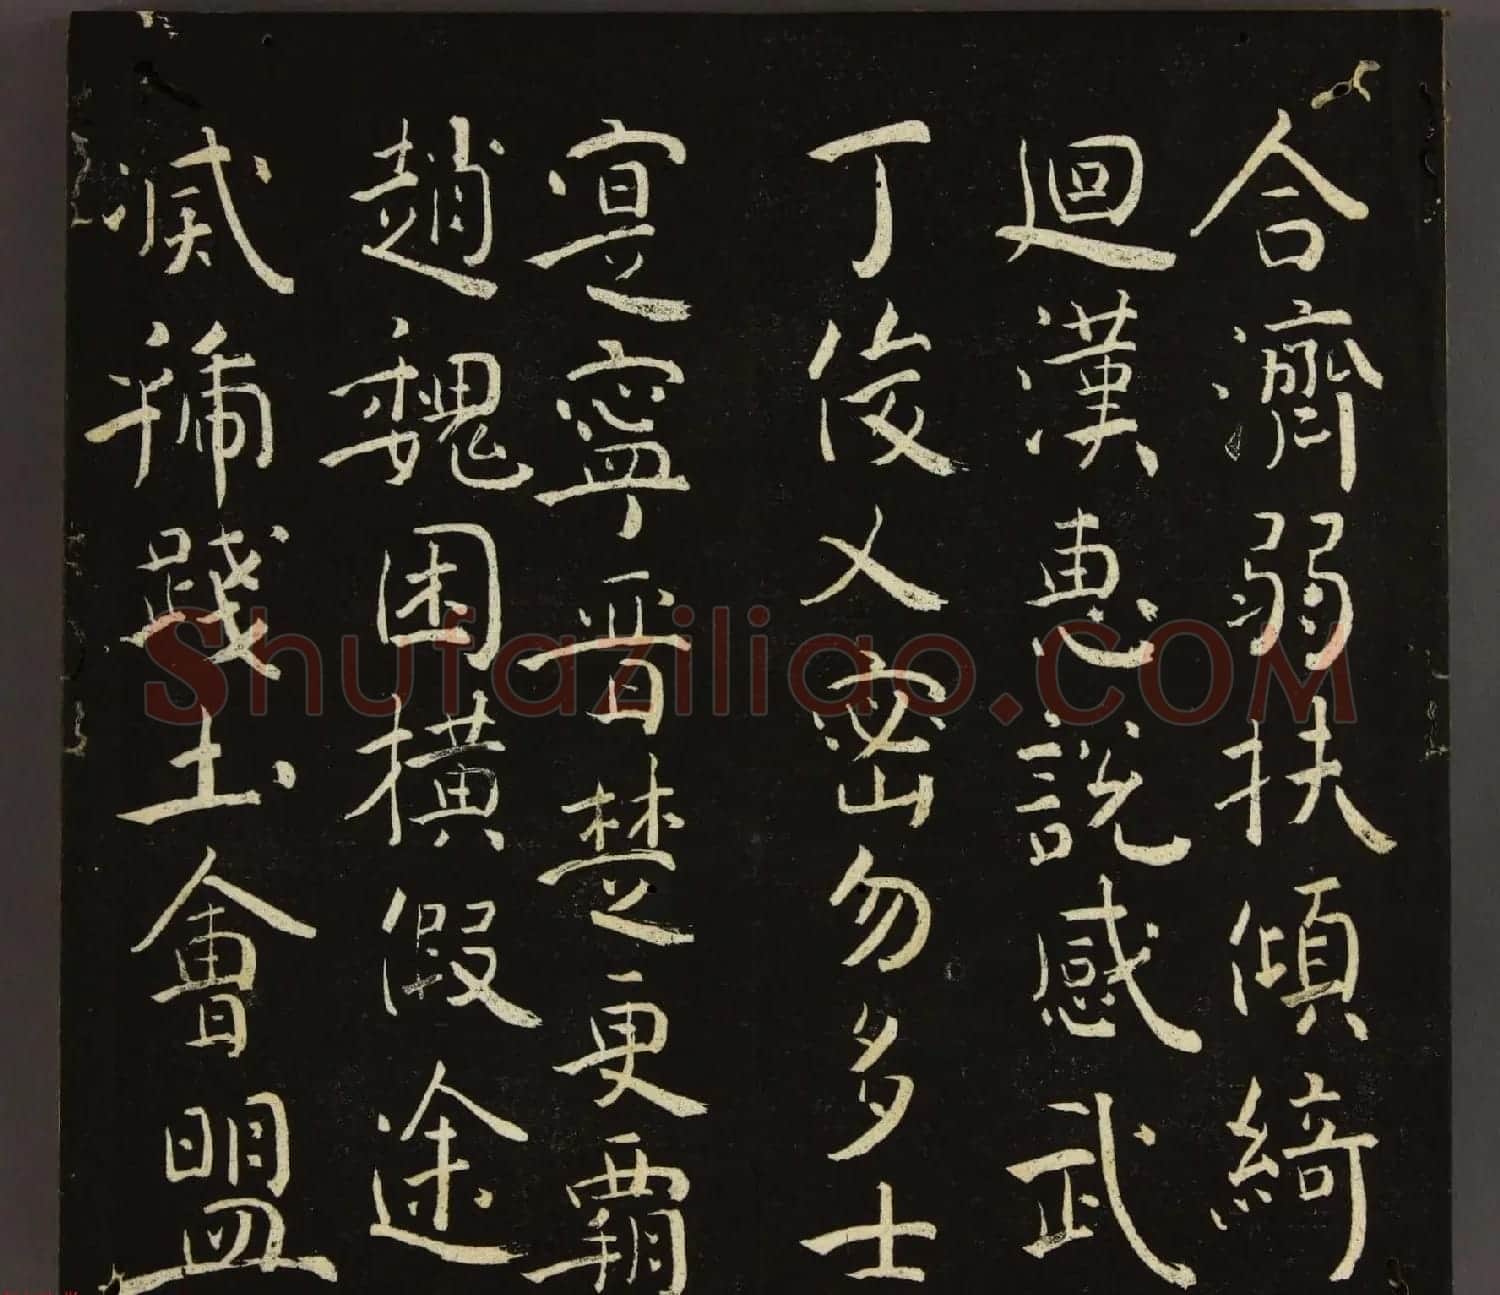 合濟弱扶傾綺
迴漢惠說感武
丁俊乂密勿多士
寔寧晉楚更霸
趙魏困橫假途
滅虢踐土會盟
Shufaziliao.COM